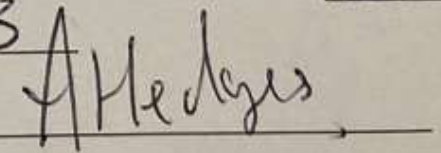 3
A Hedges